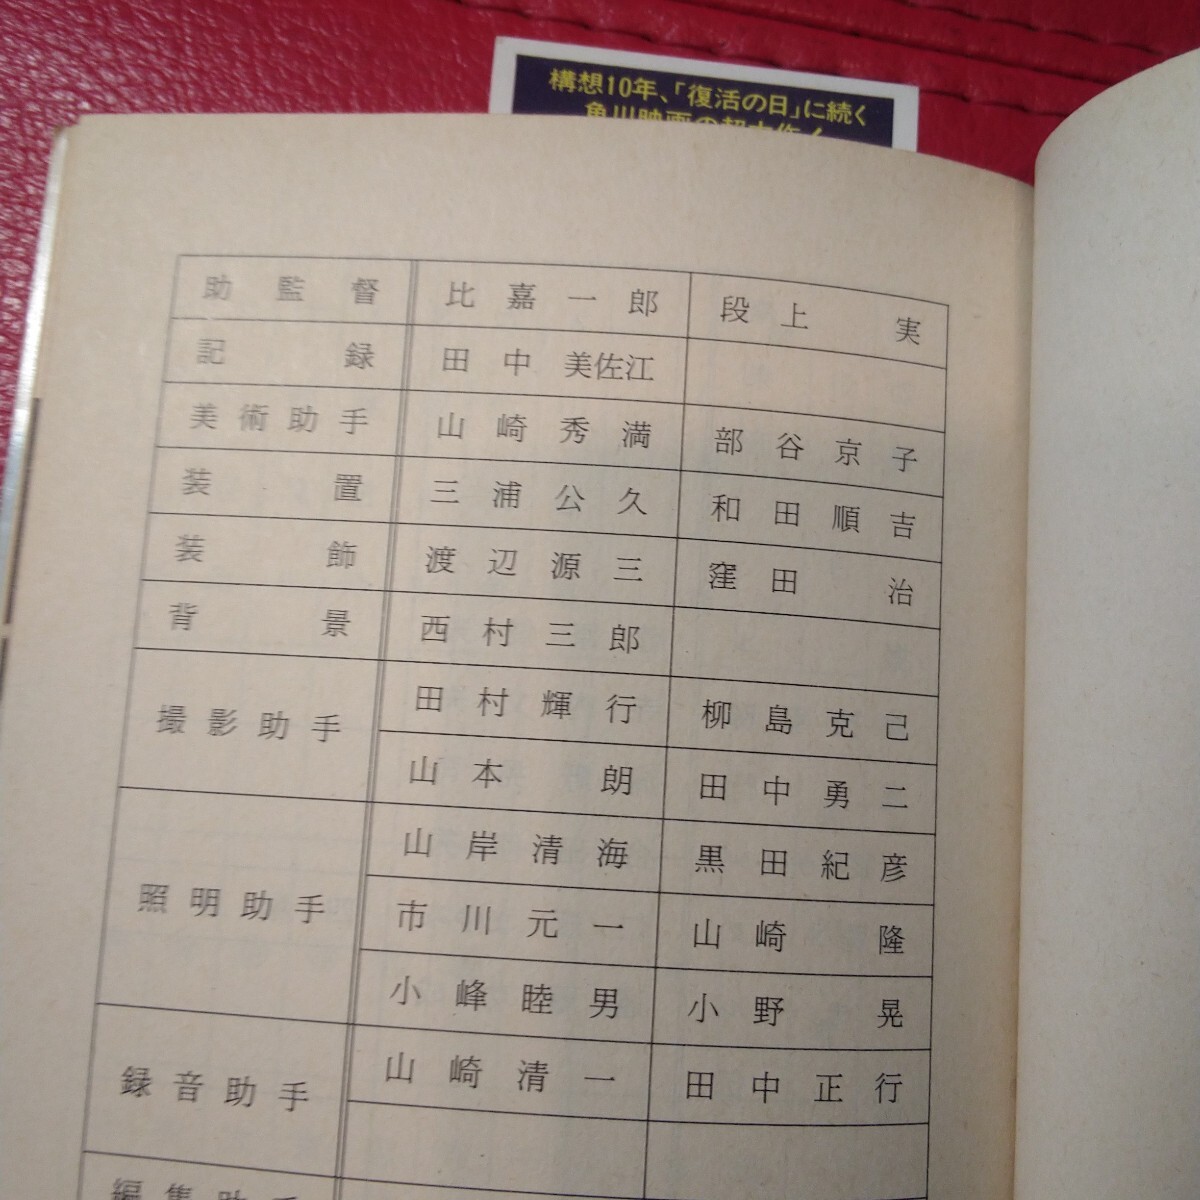 構想10年、「復活の日」に続く
角川映画の超大作!
助監督 比嘉一郎 段上実
記録 田中美佐江
美術助手 山崎秀満 部谷京子
装置 三浦公久 和田順吉
装飾 渡辺源三 窪田治
背景 西村三郎
撮影助手 田村輝行 柳島克己
山本朗 田中勇二
照明助手 山岸清海 黒田紀彦
市川元一 山崎隆
小峰睦男 小野晃
録音助手 山崎清一 田中正行
編集助手